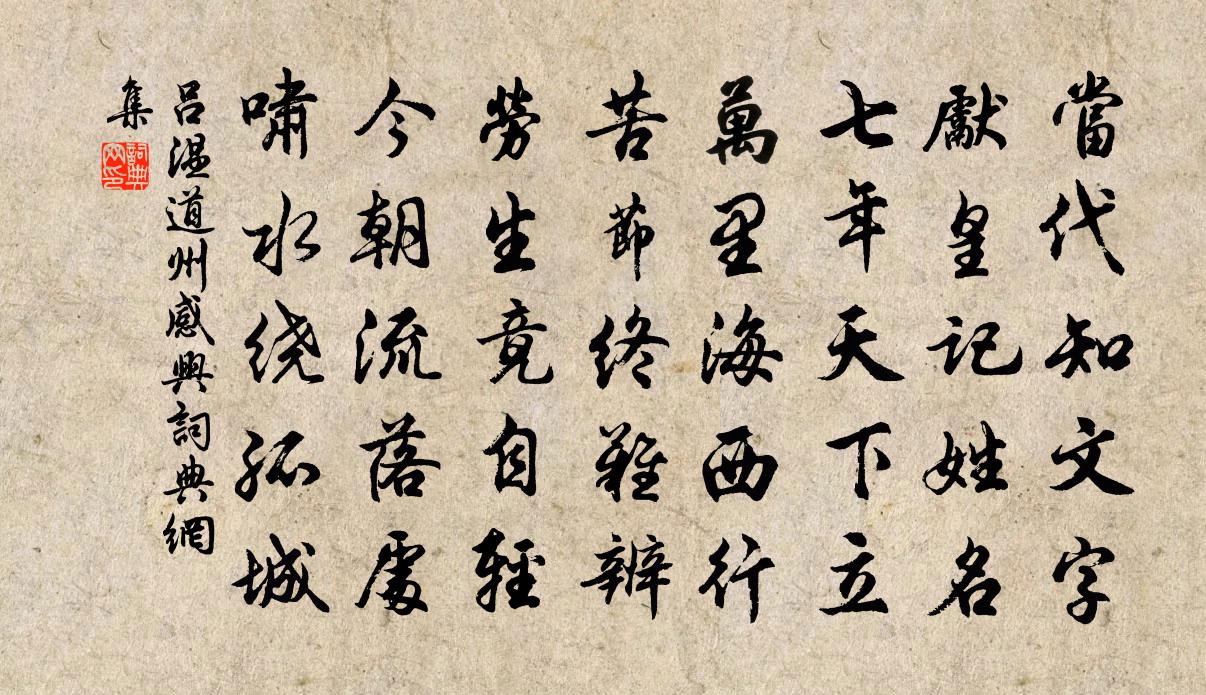 當代知文字
獻皇記姓名
七年天下立
萬里海西行
苦節終難辨
勞生竟自輕
今朝流落處
嘯水绕孤城
吕温道州感興詞典網
集
詞典
网印